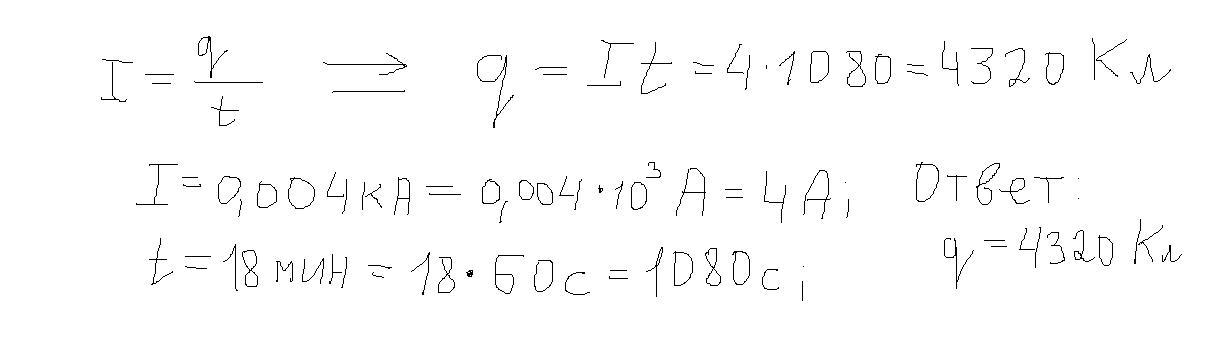 I = q/t ⟹ q = It = 4·1080 = 4320 Кл
I = 0,004кА = 0,004·10³ А = 4А; Ответ:
t = 18мин = 18·60с = 1080с; q = 4320 Кл